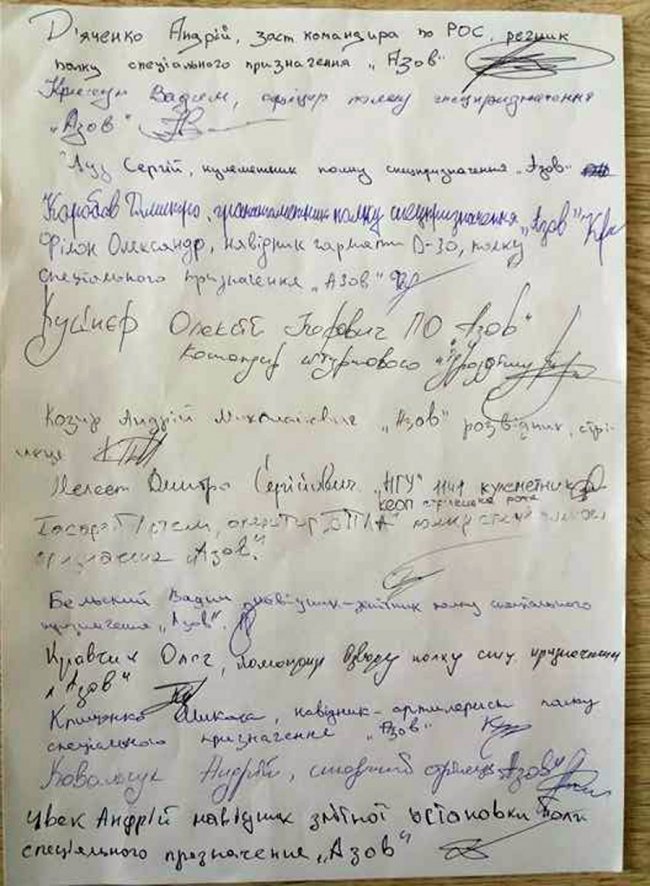 Д'яченко Андрій, заст командира по РОС, речник
полку спеціального призначення „Азов"
Вадим, офіцер полку спецпризначення
„Азов"
Ауз Сергій, кулеметник полку спецпризначення „Азов"
Дмитро, гранатометник полку спецпризначення „Азов"
Філон Олександр, навідник гармати D-30, полку
спеціального призначення „Азов"
Кушнєр Олексій Ігорович ПО „Азов"
Командир штурмового
Козир Андрій Миколайович „Азов" розвідник, стрі-
лець
Пелест Дмитро Сергійович „НГУ" 1141 кулеметник
стрілецька рота
оператор „БПЛА" полку спеціального
призначення „Азов".
Бельский Вадим навідник-зенітник полку спеціального
призначення „Азов".
Кравчик Олег, командир взводу полку спец призначення
„Азов"
Микола, навідник-артилерист полку
спеціального призначення „Азов"
Ковальчук Андрій, старший стрілець „Азов"
Цвек Андрій навідник зенітної установки полк
спеціяльного презначення „Азов"